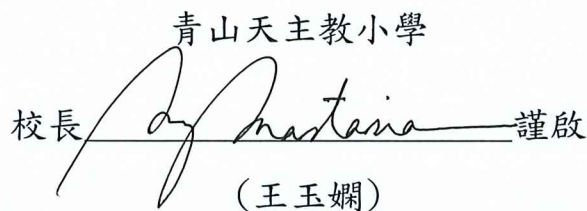 青山天主教小學
校長 Anastasia 謹啟
(王玉嫻)